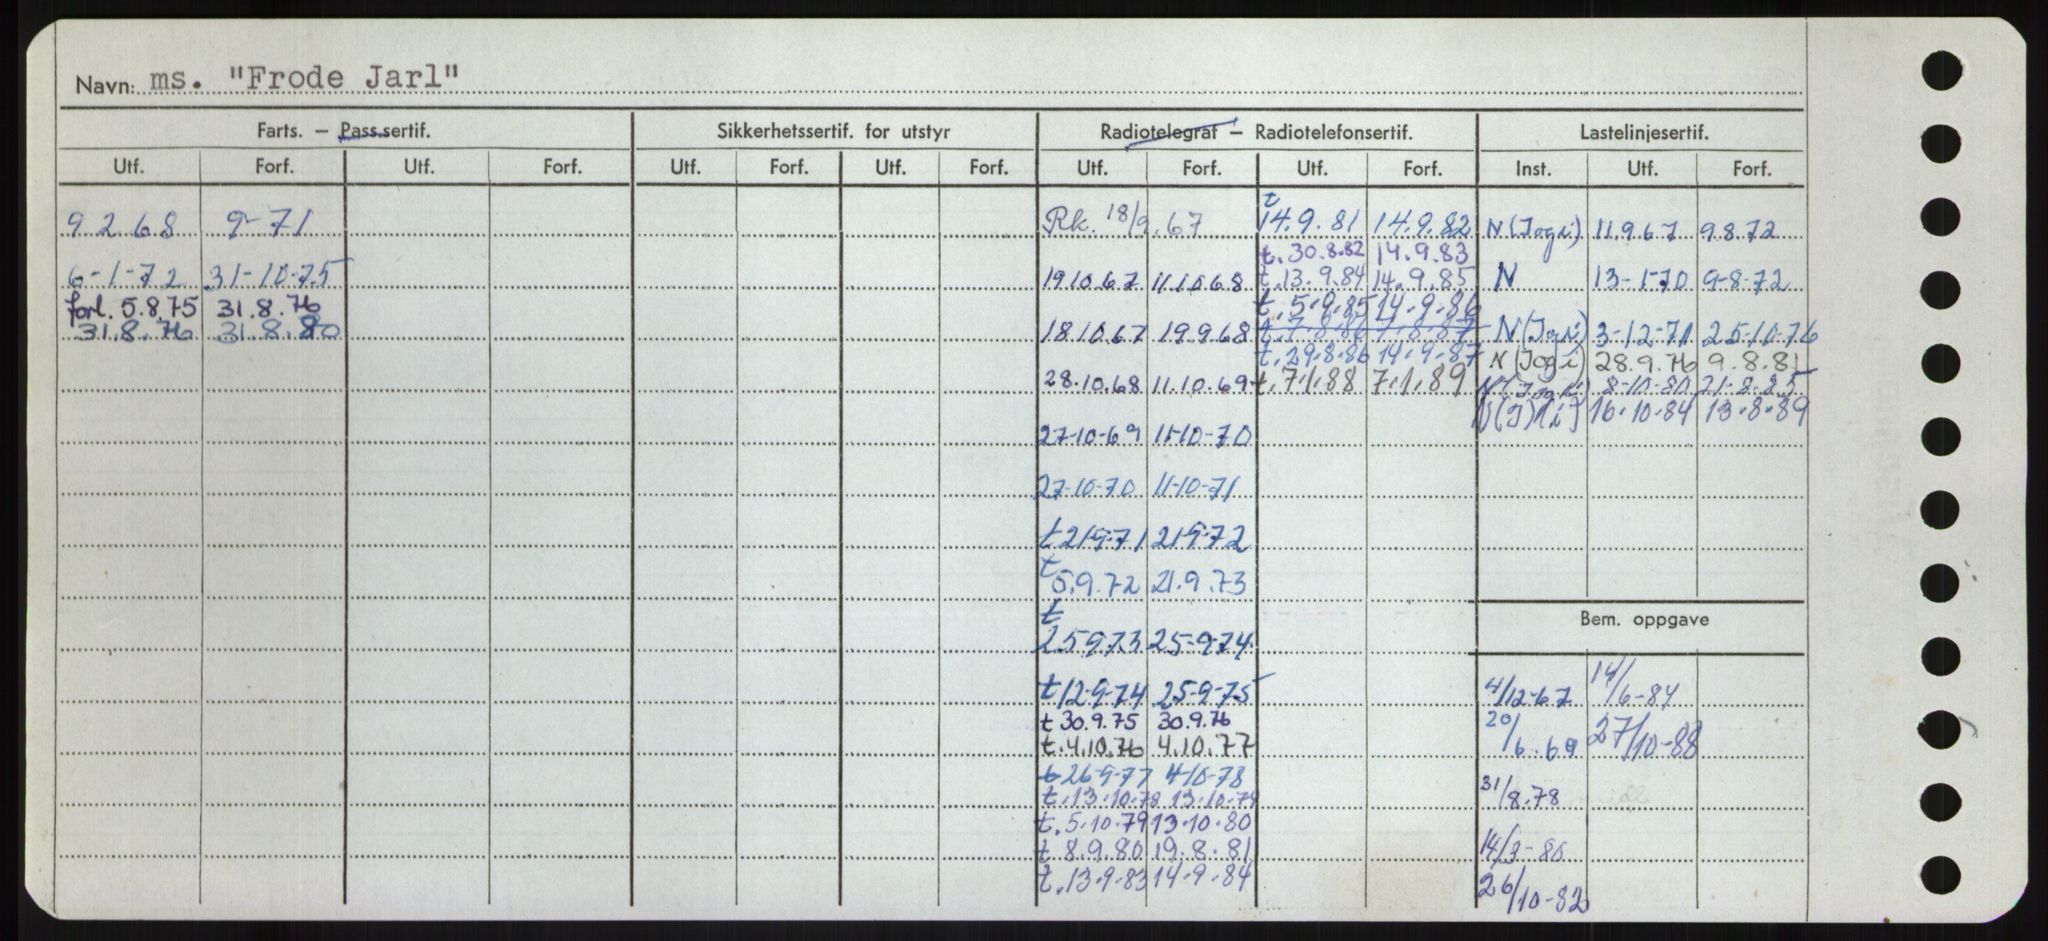 Navn: ms. "Frode Jarl"
Farts. – Pass.sertif. Sikkerhetssertif. for utstyr Radiotelegraf – Radiotelefonsertif. Lastelinjesertif.
Utf. Forf. Utf. Forf. Utf. Forf. Utf. Forf. Utf. Forf. Utf. Forf. Inst. Utf. Forf.
9 2 68 9-71
6-1-72 31-10-75
forl. 5.8.75 31.8.76
31.8.76 31.8.80
Rk. 18/9.67
19.10.67 11.10.68
18.10.67 19.9.68
28.10.68 11.10.69
27-10-69 11-10-70
27-10-70 11-10-71
t 21-9-71 21-9-72
t 5.9.72 21.9.73
t 25.9.73 25-9-74
t 12-9-74 25-9-75
t 30.9.75 30.9.76
t. 4.10.76 4.10.77
t 26-9-77 4-10-78
t. 13.10.78 13.10.79
t. 5.10.79 13.10.80
t 8.9.80 19.8.81
t. 13.9.83 14.9.84
t 14.9.81 14.9.82
t. 30.8.82 14.9.83
t. 13.9.84 14.9.85
t. 5.9.85 14.9.86
t. 7.8.86 7.8.87
t. 29.8.86 14.9.87
t. 7.1.88 7.1.89
N (Jogi) 11.9.67 9.8.72
N 13-1-70 9-8-72
N (Jogi) 3-12-71 25-10-76
N (Jogi) 28.9.76 9.8.81
8-10-80
16.10.84 13.8.89
Bem. oppgave
4/12-67 14/6-84
20/6.69 27/10-88
31/8.78
14/3-80
26/10-82